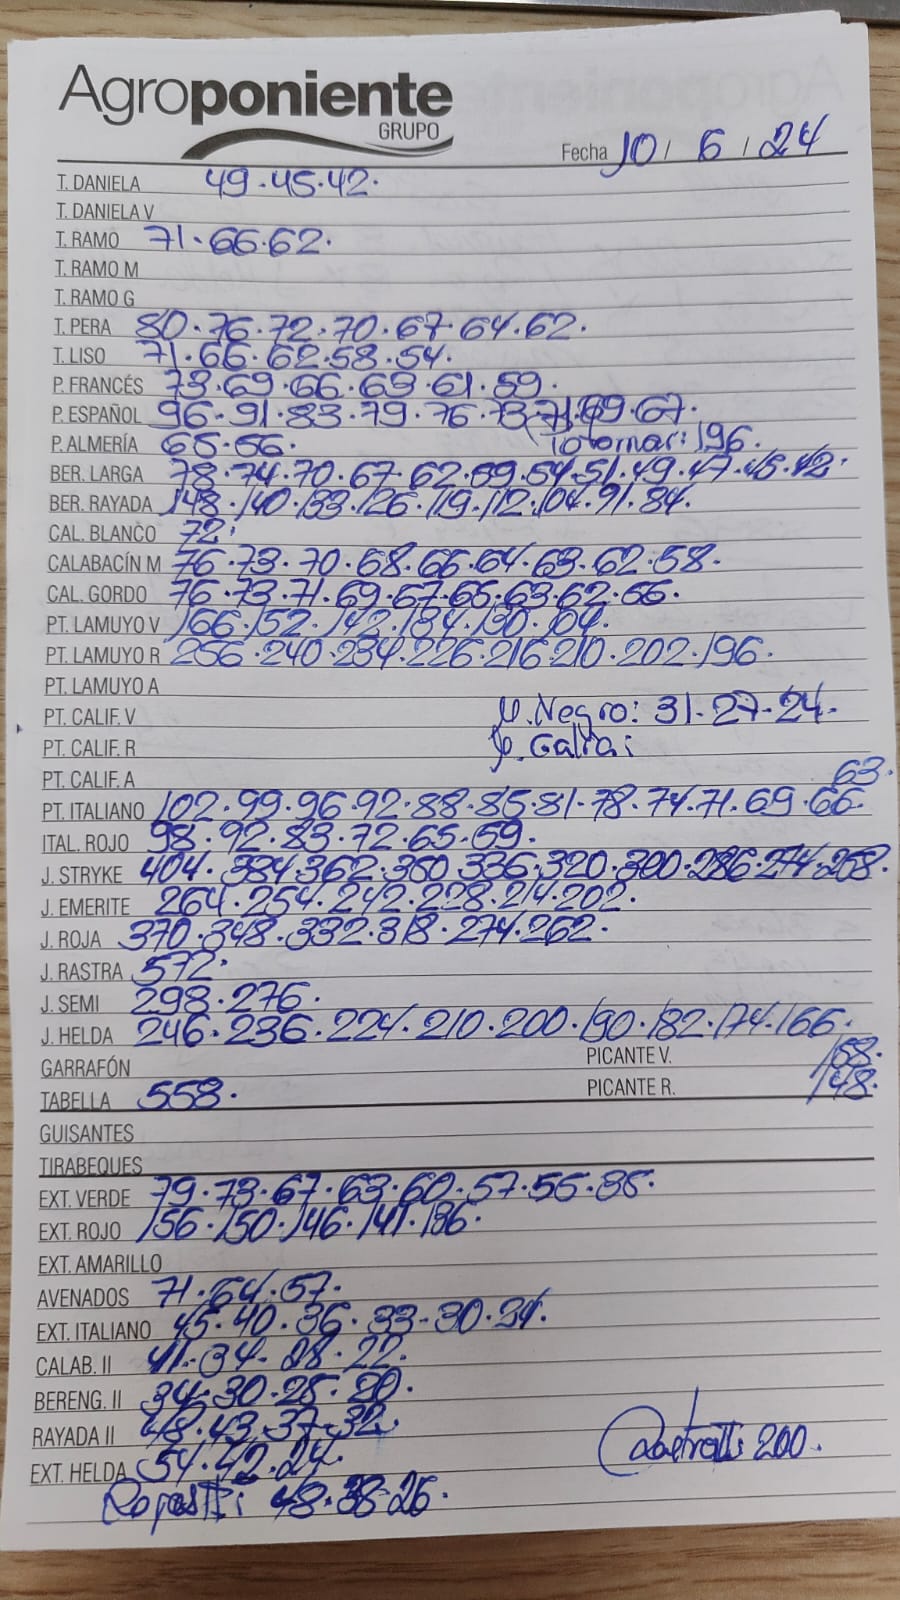 Agroponiente
GRUPO
Fecha 10 / 6 / 24
T. DANIELA 49.45.42.
T. DANIELA V
T. RAMO 71.66.62.
T. RAMO M
T. RAMO G
T. PERA 80.76.72.70.67.64.62.
T. LISO 71.66.62.58.54.
P. FRANCÉS 73.69.66.63.61.59.
P. ESPAÑOL 96.91.83.79.76.73.71.69.67.
P. ALMERÍA 65.56. 196.
BER. LARGA 78.74.70.67.62.59.54.51.49.47.45.42.
BER. RAYADA 148.140.133.126.119.112.104.91.84.
CAL. BLANCO 72.
CALABACÍN M 76.73.70.68.66.64.63.62.58.
CAL. GORDO 76.73.71.69.67.65.63.62.56.
PT. LAMUYO V 166.152.142.134.130.104.
PT. LAMUYO R 256.240.234.226.216.210.202.196.
PT. LAMUYO A
PT. CALIF. V p.Negro: 31.27.24.
PT. CALIF. R p.Galia:
PT. CALIF. A 63.
PT. ITALIANO 102.99.96.92.88.85.81.78.74.71.69.66.
ITAL. ROJO 98.92.83.72.65.59.
J. STRYKE 404.384.362.350.336.320.300.286.274.268.
J. EMERITE 264.254.242.228.214.202.
J. ROJA 370.348.332.318.274.262.
J. RASTRA 572.
J. SEMI 298.276.
J. HELDA 246.236.224.210.200.190.182.174.166.
GARRAFÓN PICANTE V. 158.
TABELLA 558. PICANTE R. 148.
GUISANTES
TIRABEQUES
EXT. VERDE 79.73.67.63.60.57.55.35.
EXT. ROJO 156.150.146.141.136.
EXT. AMARILLO
AVENADOS 71.64.57.
EXT. ITALIANO 45.40.36.33.30.24.
CALAB. II 41.34.28.22.
BERENG. II 34.30.25.20.
RAYADA II 48.43.37.32.
EXT. HELDA 54.42.24. 200.
Rojas II: 48.38.26.